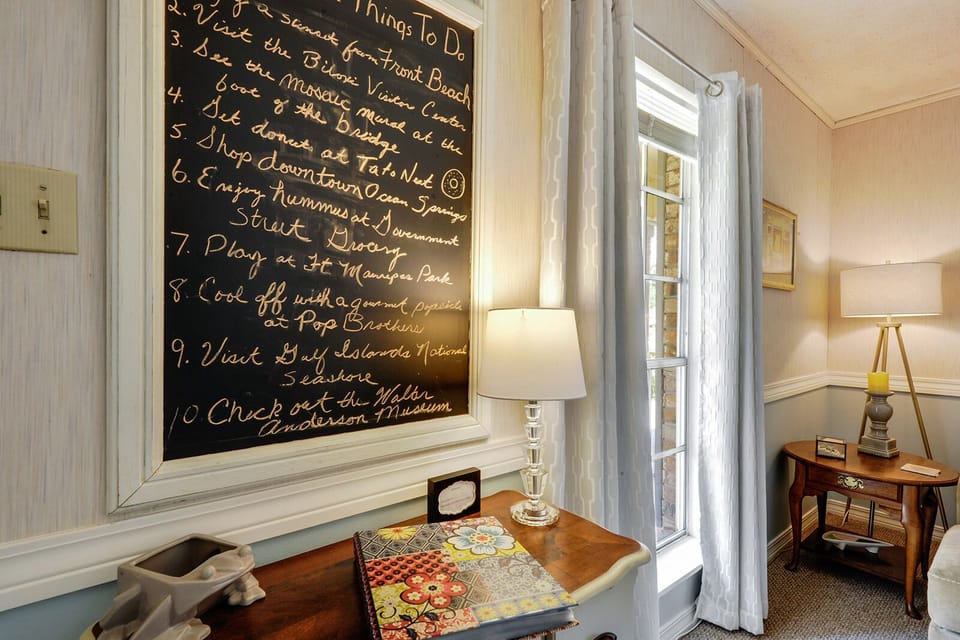 Things To Do
a sunset from Front Beach
2. Visit the Biloxi Visitor Center
3. See the mosaic mural at the
foot of the bridge
4. Get donuts at Tato Nut
5. Shop downtown Ocean Springs
6. Enjoy hummus at Government
Street Grocery
7. Play at Ft Maurepas Park
8. Cool off with a gourmet popsicle
at Pop Brothers
9. Visit Gulf Islands National
Seashore
10. Check out the Walter
Anderson Museum